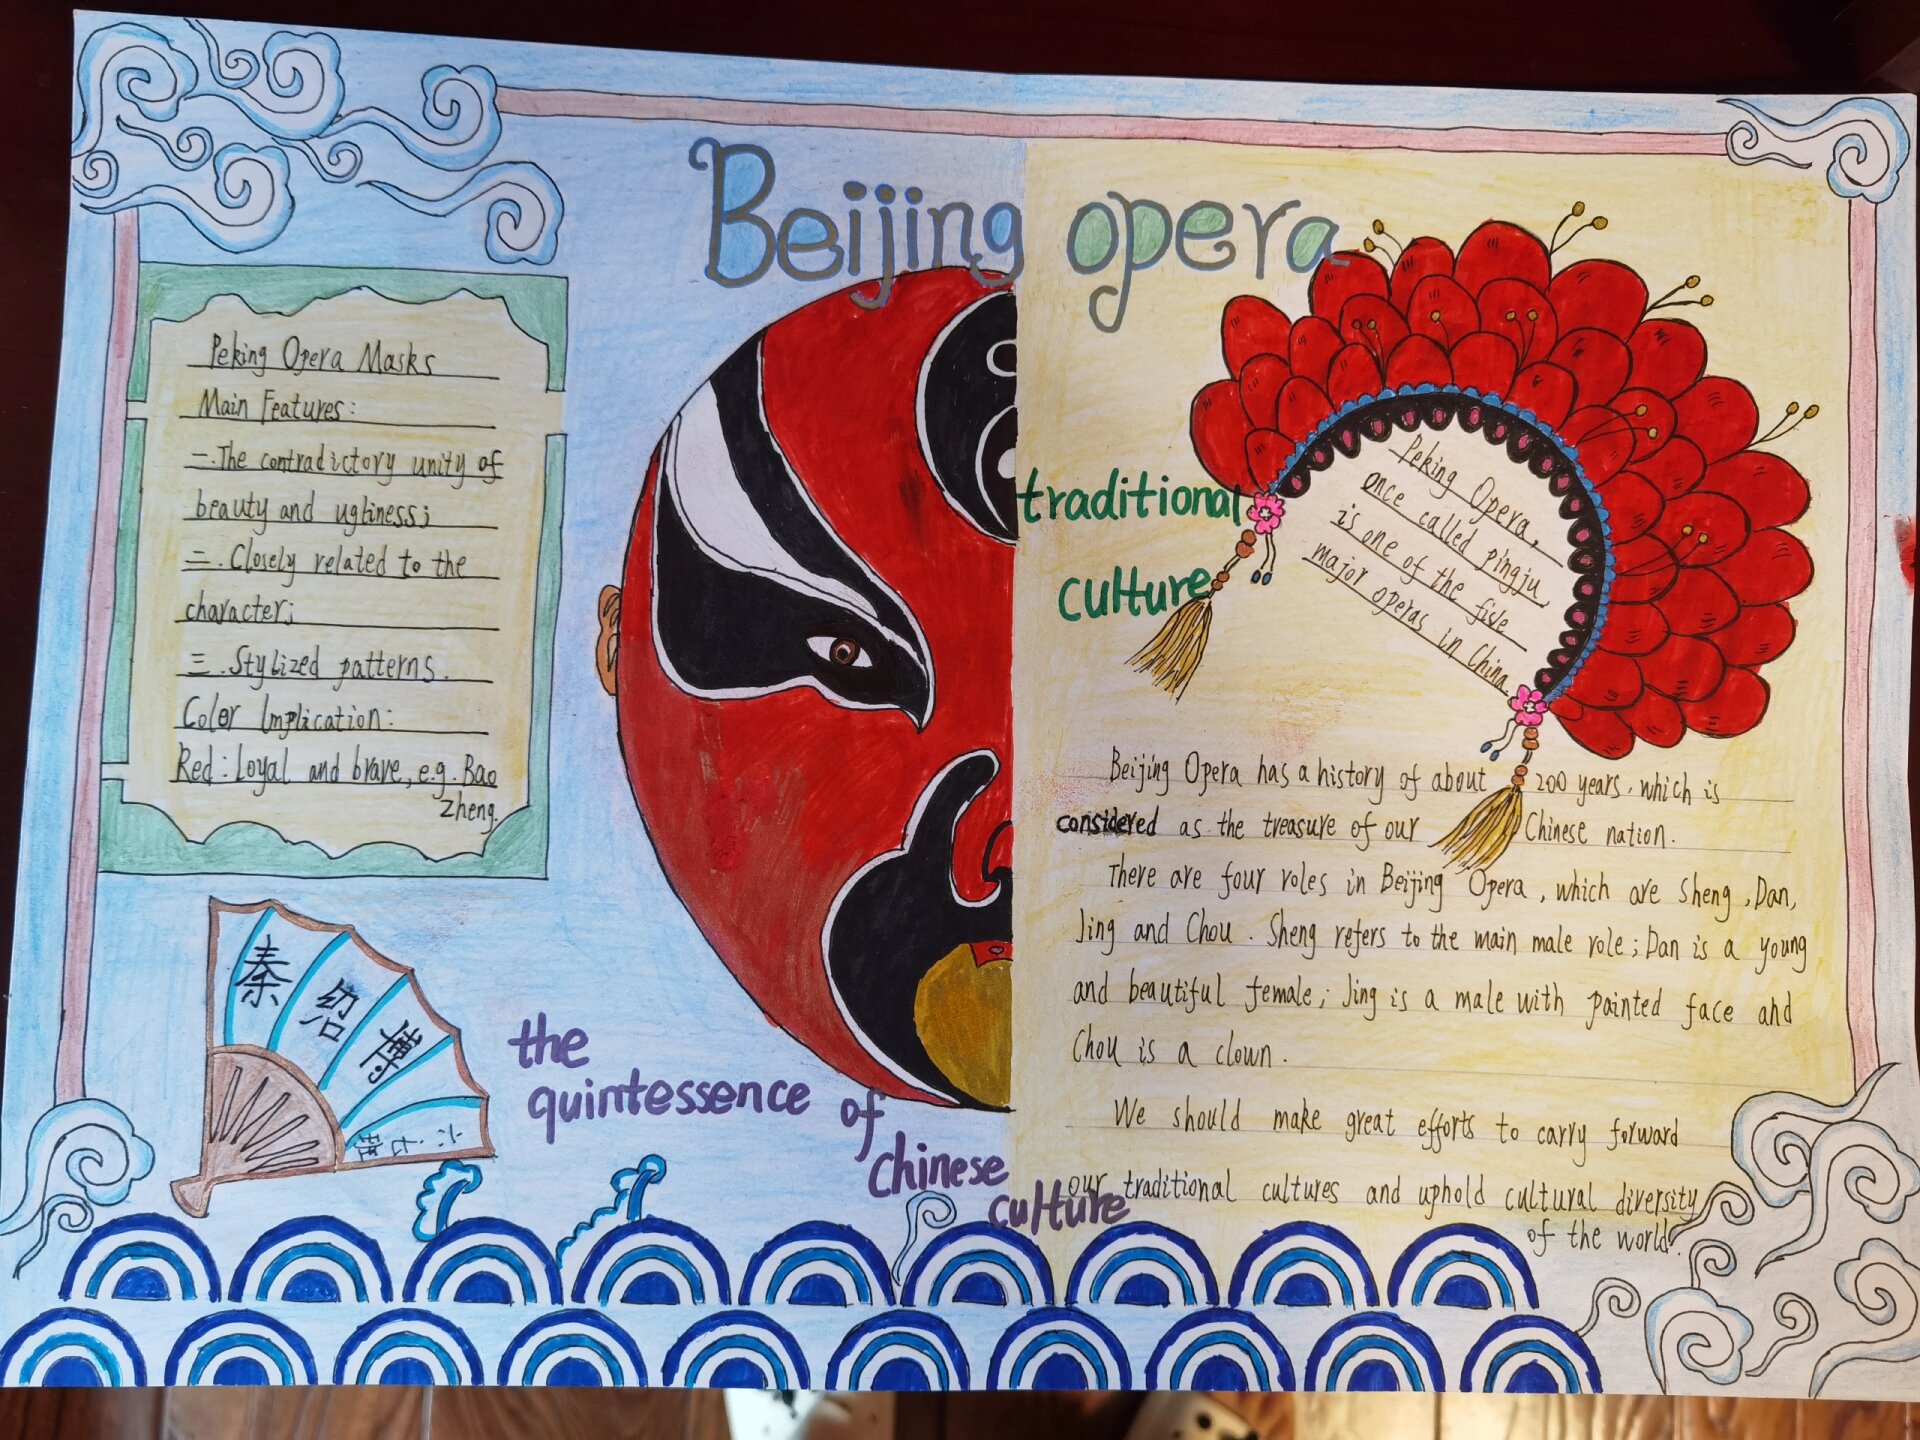 Beijing opera
Peking Opera Masks
Main Features:
一.The contradictory unity of
beauty and ugliness;
二.Closely related to the
character;
三.Stylized patterns.
Color Implication:
Red: Loyal and brave, e.g. Bao
Zheng.
秦绍博
the
quintessence of
chinese
culture
traditional
culture
Peking Opera,
once called pingju,
is one of the five
major operas in China
Beijing Opera has a history of about 200 years, which is
considered as the treasure of our Chinese nation.
There are four roles in Beijing Opera, which are Sheng, Dan,
Jing and Chou. Sheng refers to the main male role; Dan is a young
and beautiful female; Jing is a male with painted face and
Chou is a clown.
We should make great efforts to carry forward
our traditional cultures and uphold cultural diversity
of the world.